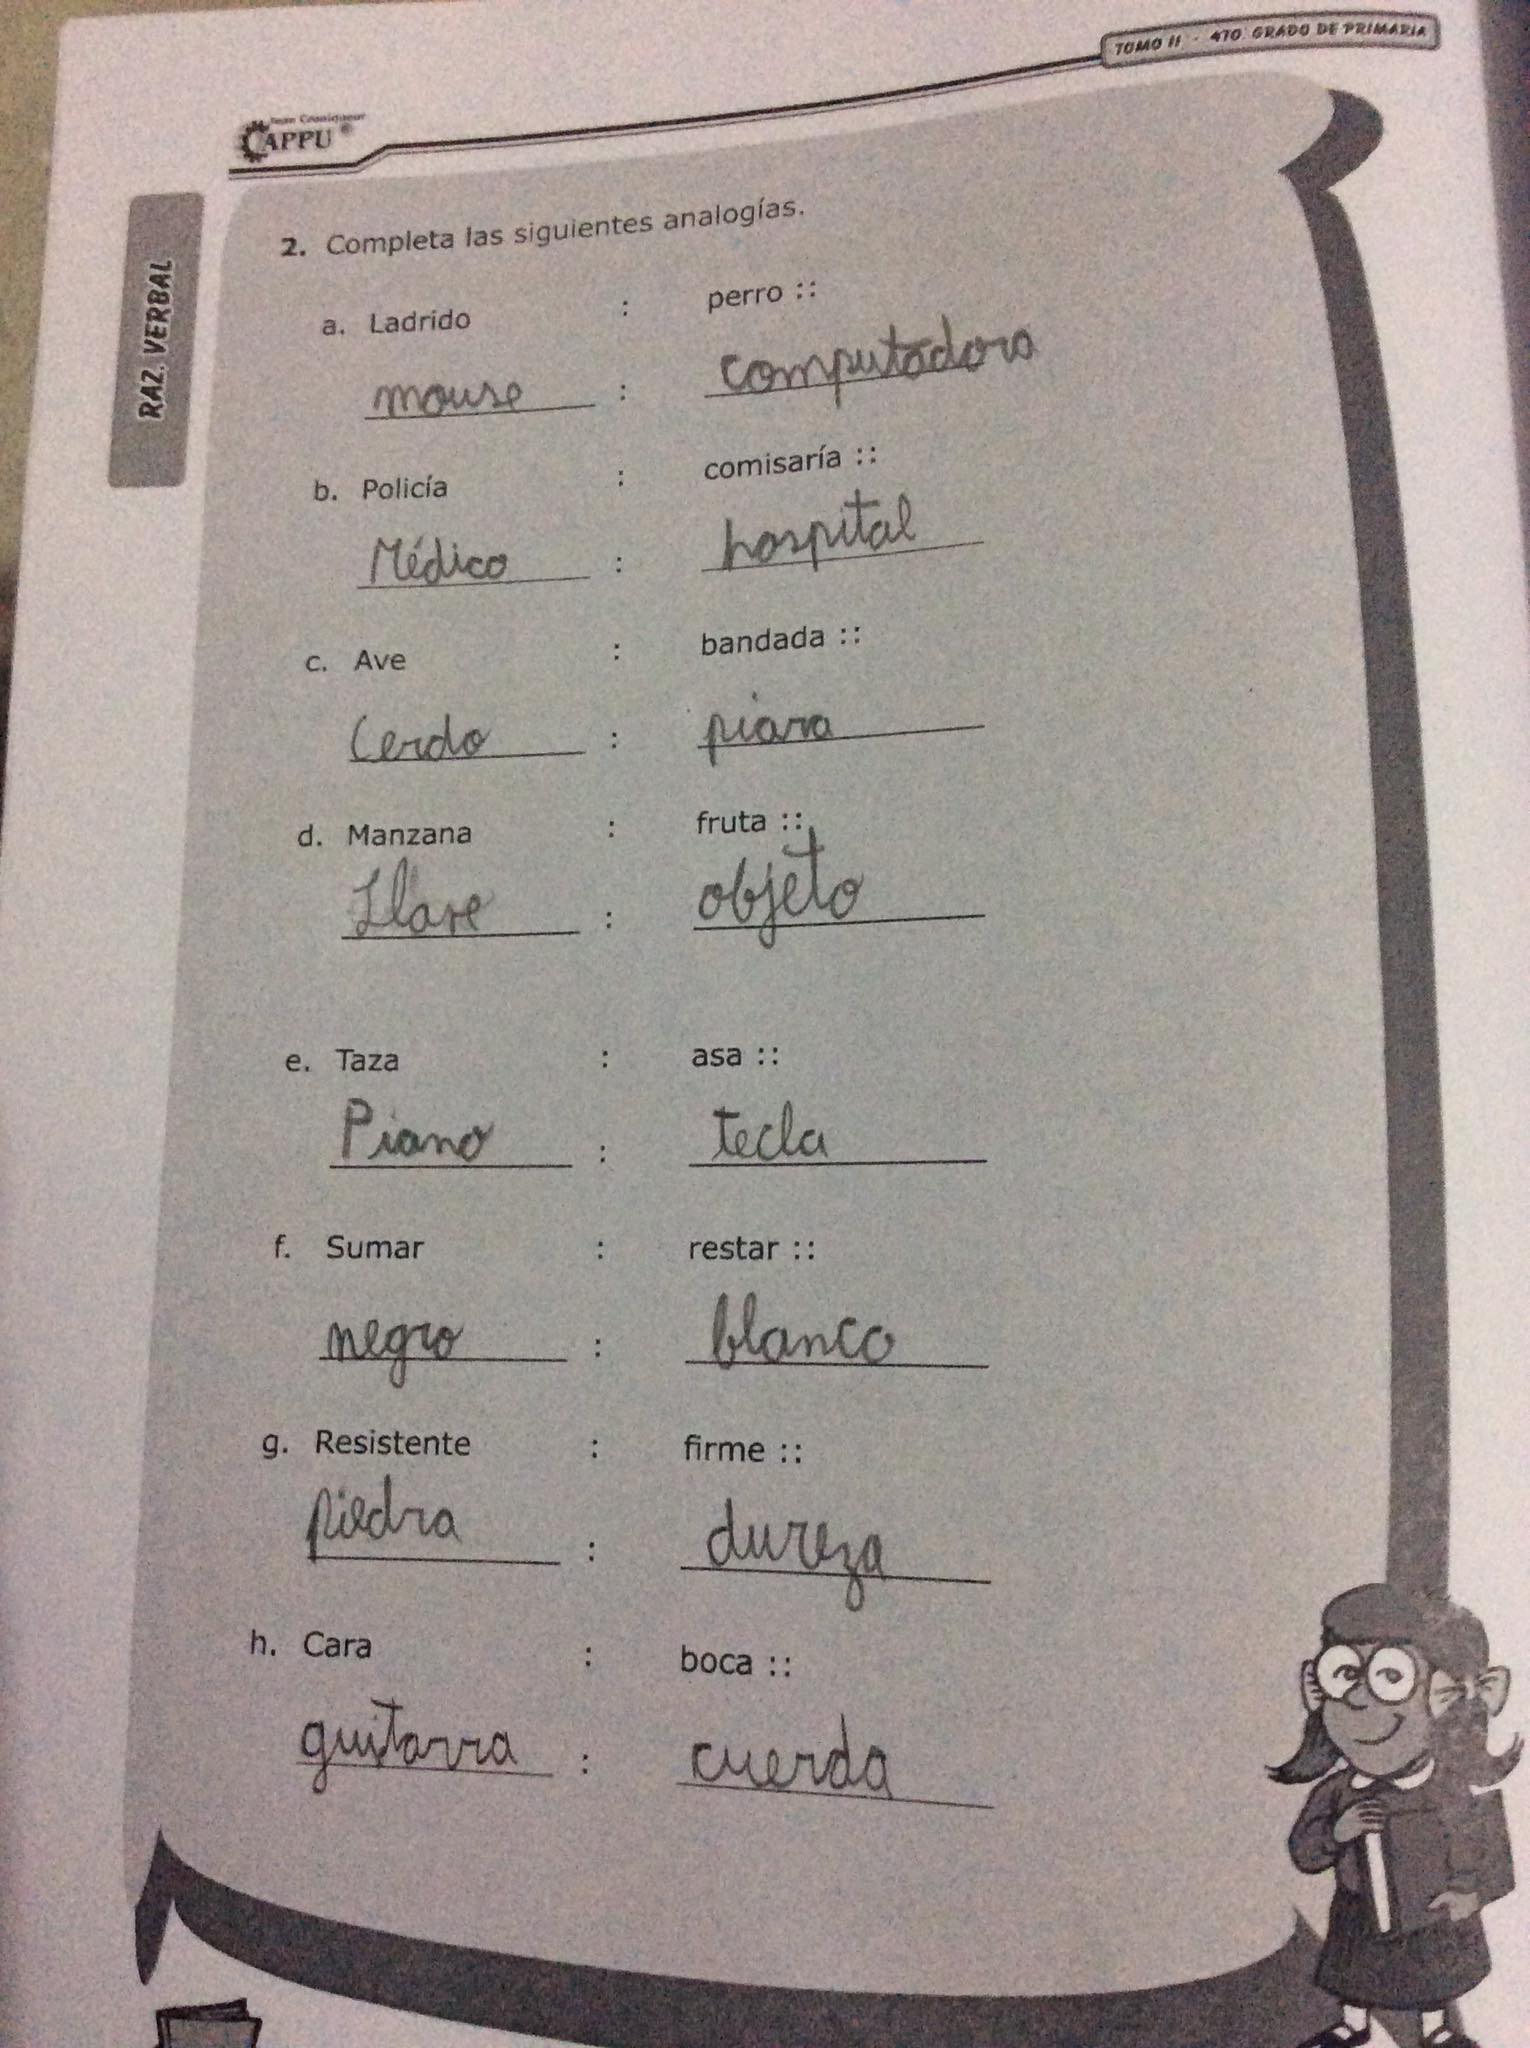 TOMO II - 4TO. GRADO DE PRIMARIA
APPU
RAZ. VERBAL
2. Completa las siguientes analogías.
a. Ladrido : perro ::
mouse : computadora
b. Policía : comisaría ::
Médico : hospital
c. Ave : bandada ::
Cerdo : piara
d. Manzana : fruta ::
Llave : objeto
e. Taza : asa ::
Piano : tecla
f. Sumar : restar ::
negro : blanco
g. Resistente : firme ::
piedra : dureza
h. Cara : boca ::
guitarra : cuerda